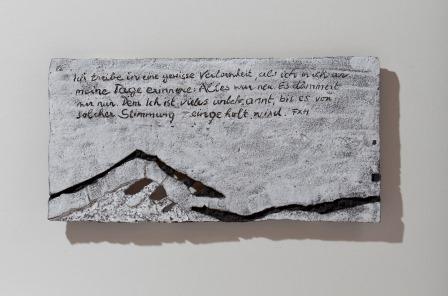 Ich treibe in eine gewisse Verlorenheit, als ich mich an
meine Tage erinnere. Alles nur neu. Es dämmert
mir nur. Dem Ich ist vieles unbekannt, bis es von
solcher Stimmung eingeholt wird. FXH